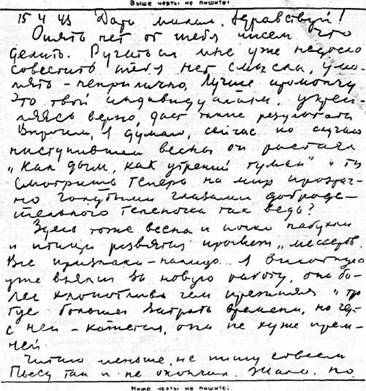 Выше черты не пишите!
15 4 43 Дарь милая, здравствуй!
Опять нет от тебя писем что
делать. Ругаться мне уже надоело
совестить тебя нет смысла, умо
лять - неприлично, лучше промолчу
Это твой индивидуализм,
верно, дает такие результаты
Впрочем, я думаю, сейчас по случаю
наступившей весны он растаял
"как дым, как утренний туман" и ты
смотришь теперь на мир прозрач-
но голубыми глазами доброде-
тельного теленочка так ведь?
Здесь тоже весна и почки набухли
и птицы
Все признаки - налицо... Я
уже взялся за новую работу, она бо-
лее хлопотлива чем прежняя и тре
бует больших затрат времени, но
с ней - кажется, она не хуже преж-
ней.
Читаю меньше, не пишу совсем
Пьесу так и не окончил. Жаль. но
Ниже черты не пишите!